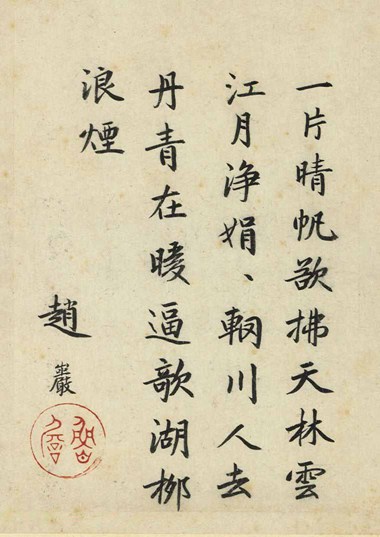 一片晴帆欲拂天林雲
江月净娟、輞川人去
丹青在暖逼歌湖柳
浪煙
趙巖